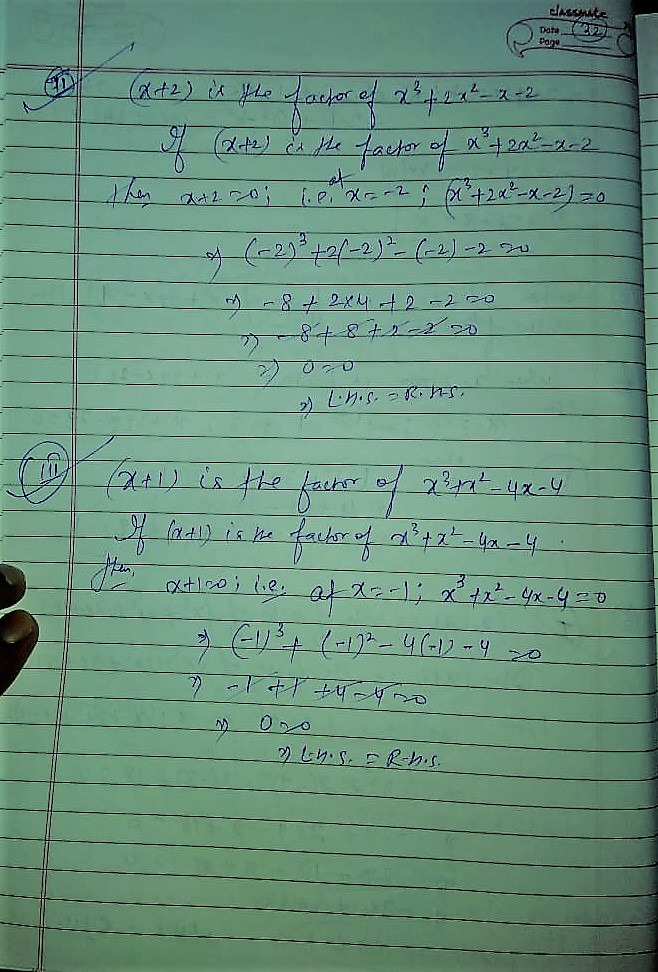 classmate
Date 32
Page
ii (x+2) is the factor of x³+2x²-x-2
If (x+2) is the factor of x³+2x²-x-2
then x+2=0; i.e. at x=-2; (x³+2x²-x-2)=0
⇒ (-2)³+2(-2)²-(-2)-2=0
⇒ -8+2×4+2-2=0
⇒ -8+8+2-2=0
⇒ 0=0
⇒ L.h.s. = R.h.s.
iii (x+1) is the factor of x³+x²-4x-4
If (x+1) is the factor of x³+x²-4x-4.
then, x+1=0; i.e. at x=-1; x³+x²-4x-4=0
⇒ (-1)³+(-1)²-4(-1)-4=0
⇒ -1+1+4-4=0
⇒ 0=0
⇒ L.h.s. = R.h.s.